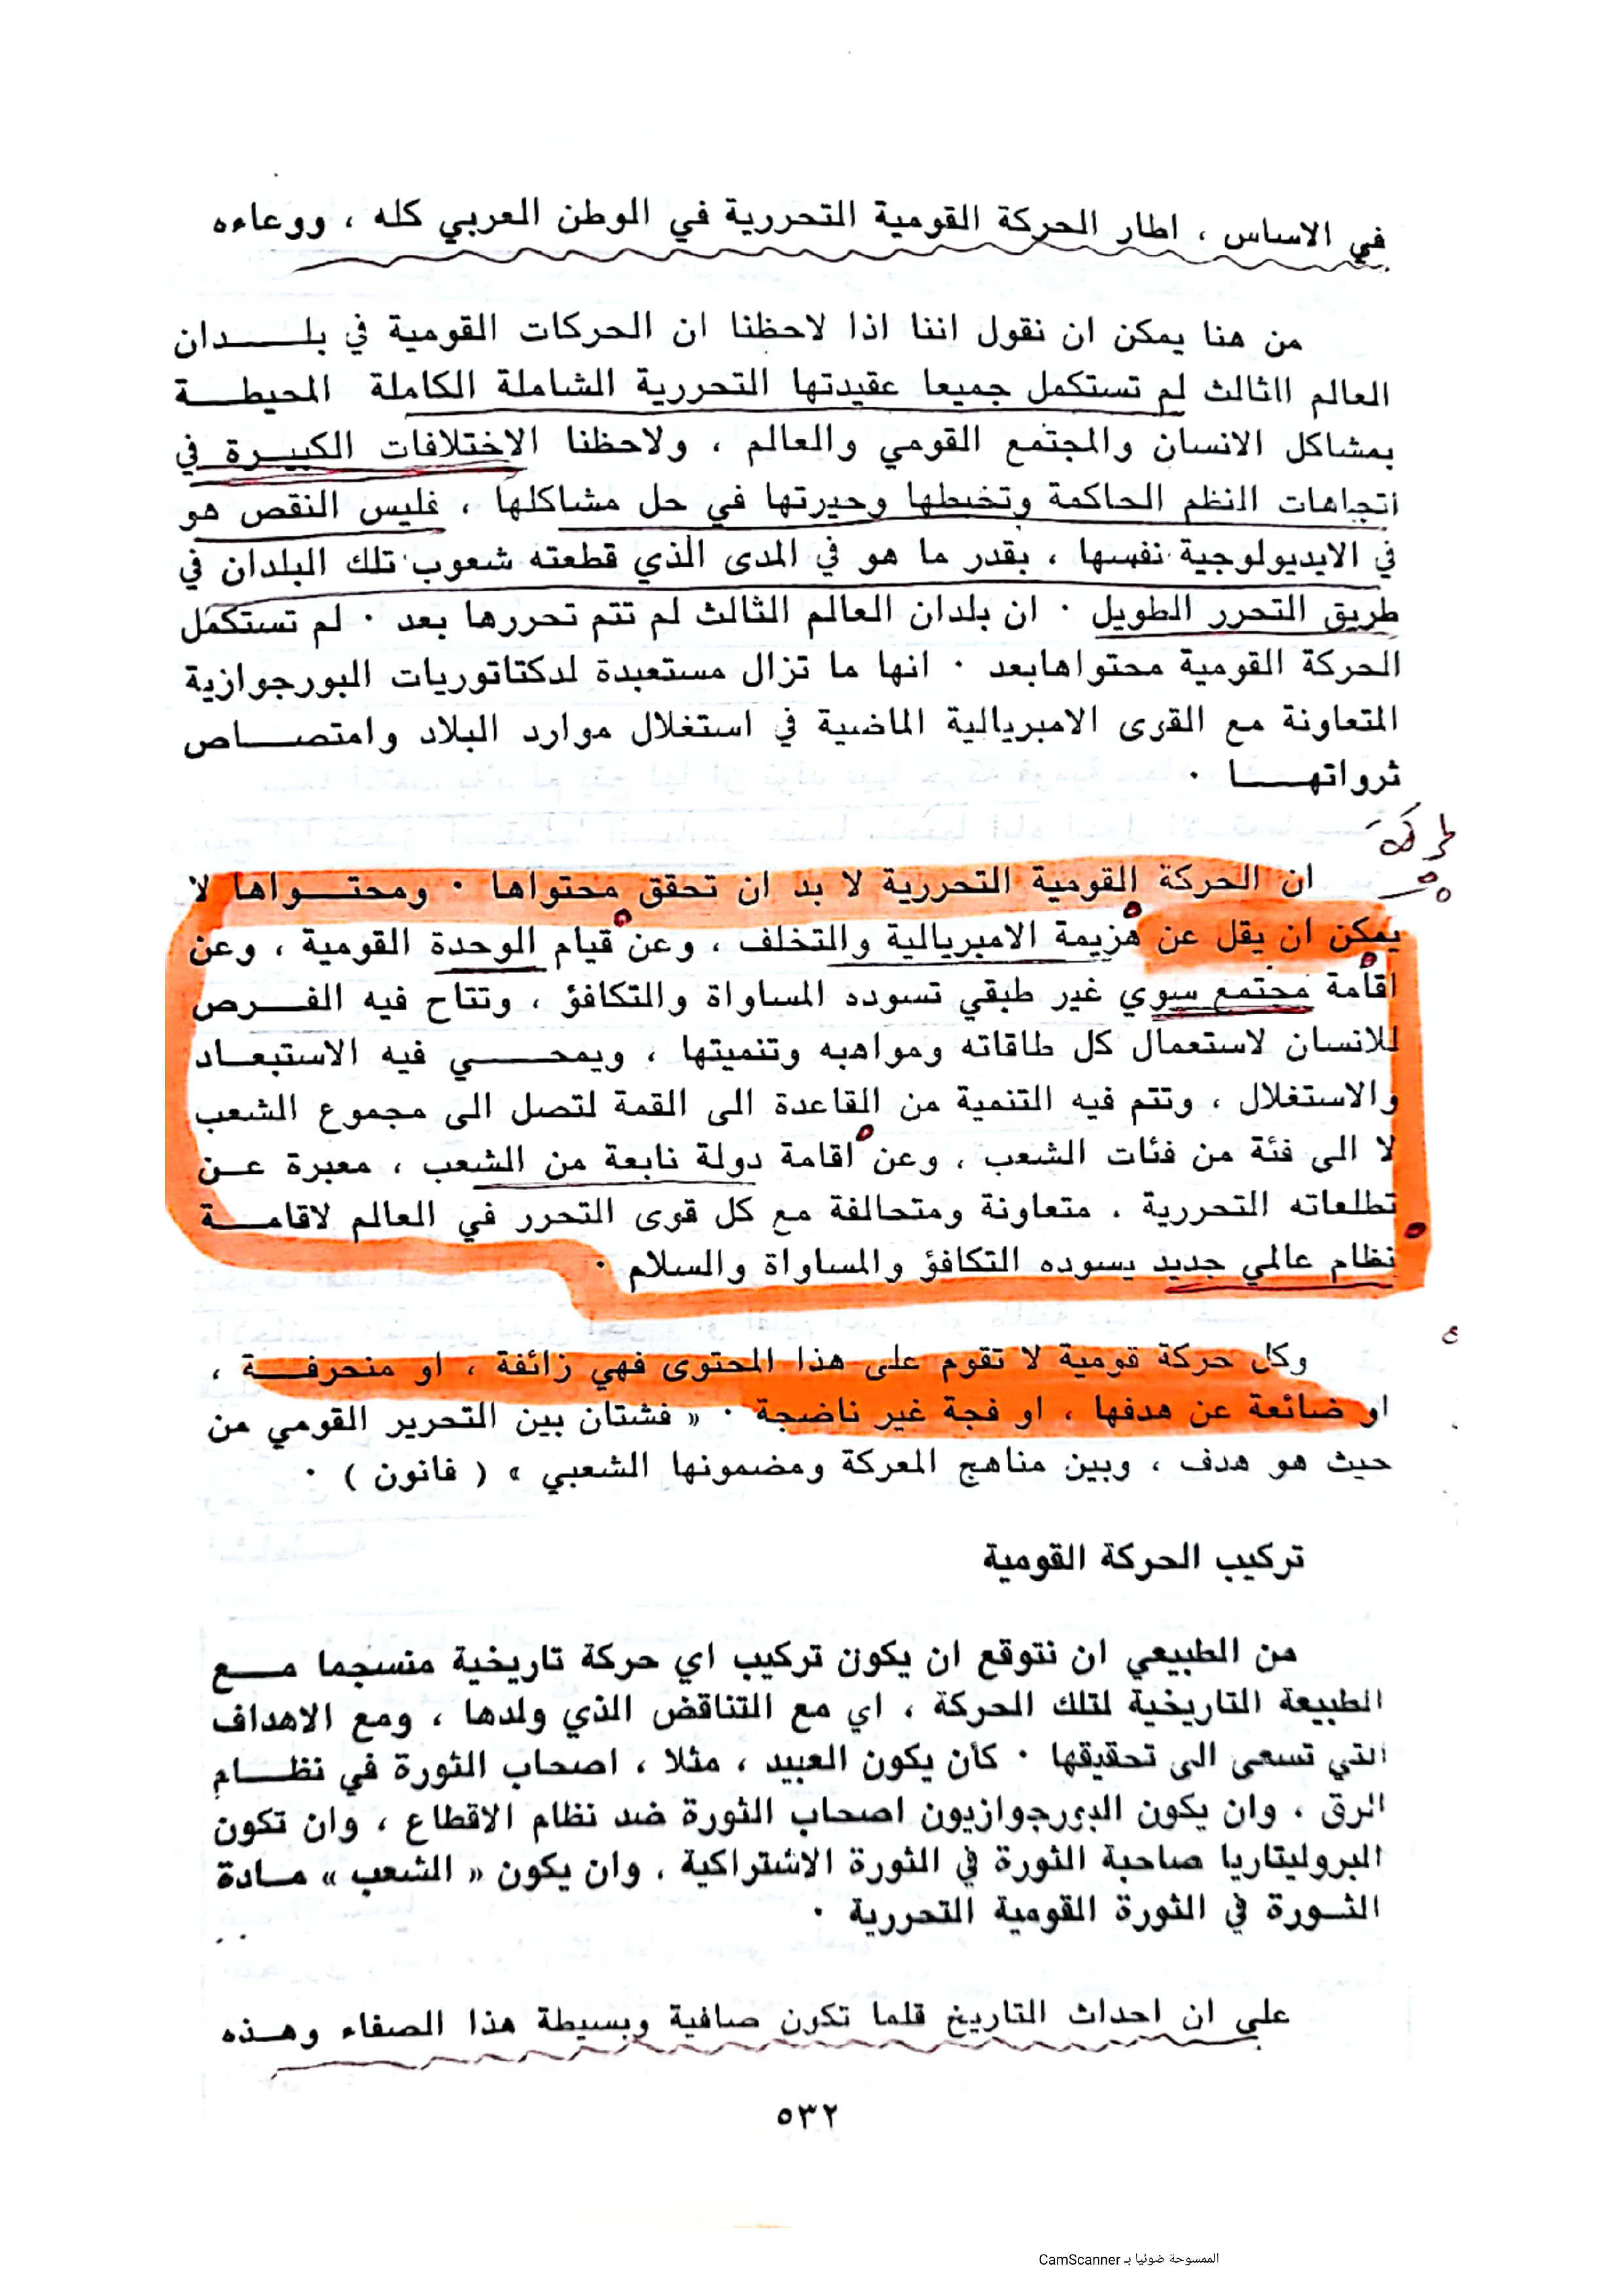 في الاساس ، اطار الحركة القومية التحررية في الوطن العربي كله ، ووعاءه
من هنا يمكن ان نقول اننا اذا لاحظنا ان الحركات القومية في بلـــدان
العالم الثالث لم تستكمل جميعا عقيدتها التحررية الشاملة الكاملة المحيطــة
بمشاكل الانسان والمجتمع القومي والعالم ، ولاحظنا الاختلافات الكبيــرة في
اتجاهات النظم الحاكمة وتخبطها وحيرتها في حل مشاكلها ، فليس النقص هو
في الايديولوجية نفسها ، بقدر ما هو في المدى الذي قطعته شعوب تلك البلدان في
طريق التحرر الطويل . ان بلدان العالم الثالث لم تتم تحررها بعد . لم تستكمل
الحركة القومية محتواهابعد . انها ما تزال مستعبدة لدكتاتوريات البورجوازية
المتعاونة مع القوى الامبريالية الماضية في استغلال موارد البلاد وامتصــاص
ثرواتهــــا .
ان الحركة القومية التحررية لا بد ان تحقق محتواها . ومحتــواها لا
يمكن ان يقل عن هزيمة الامبريالية والتخلف ، وعن قيام الوحدة القومية ، وعن
اقامة مجتمع سوي غير طبقي تسوده المساواة والتكافؤ ، وتتاح فيه الفــرص
للانسان لاستعمال كل طاقاته ومواهبه وتنميتها ، ويمحـــي فيه الاستبعــاد
والاستغلال ، وتتم فيه التنمية من القاعدة الى القمة لتصل الى مجموع الشعب
لا الى فئة من فئات الشعب ، وعن اقامة دولة نابعة من الشعب ، معبرة عــن
تطلعاته التحررية ، متعاونة ومتحالفة مع كل قوى التحرر في العالم لاقامــة
نظام عالمي جديد يسوده التكافؤ والمساواة والسلام .
وكل حركة قومية لا تقوم على هذا المحتوى فهي زائفة ، او منحرفــة ،
او ضائعة عن هدفها ، او فجة غير ناضجة . « فشتان بين التحرير القومي من
حيث هو هدف ، وبين مناهج المعركة ومضمونها الشعبي » ( فانون ) .
تركيب الحركة القومية
من الطبيعي ان نتوقع ان يكون تركيب اي حركة تاريخية منسجما مــع
الطبيعة التاريخية لتلك الحركة ، اي مع التناقض الذي ولدها ، ومع الاهداف
التي تسعى الى تحقيقها . كأن يكون العبيد ، مثلا ، اصحاب الثورة في نظــام
الرق ، وان يكون البورجوازيون اصحاب الثورة ضد نظام الاقطاع ، وان تكون
البروليتاريا صاحبة الثورة في الثورة الاشتراكية ، وان يكون « الشعب » مــادة
الثــورة في الثورة القومية التحررية .
على ان احداث التاريخ قلما تكون صافية وبسيطة هذا الصفاء وهــذه
٥٣٢
الممسوحة ضوئيا بـ CamScanner